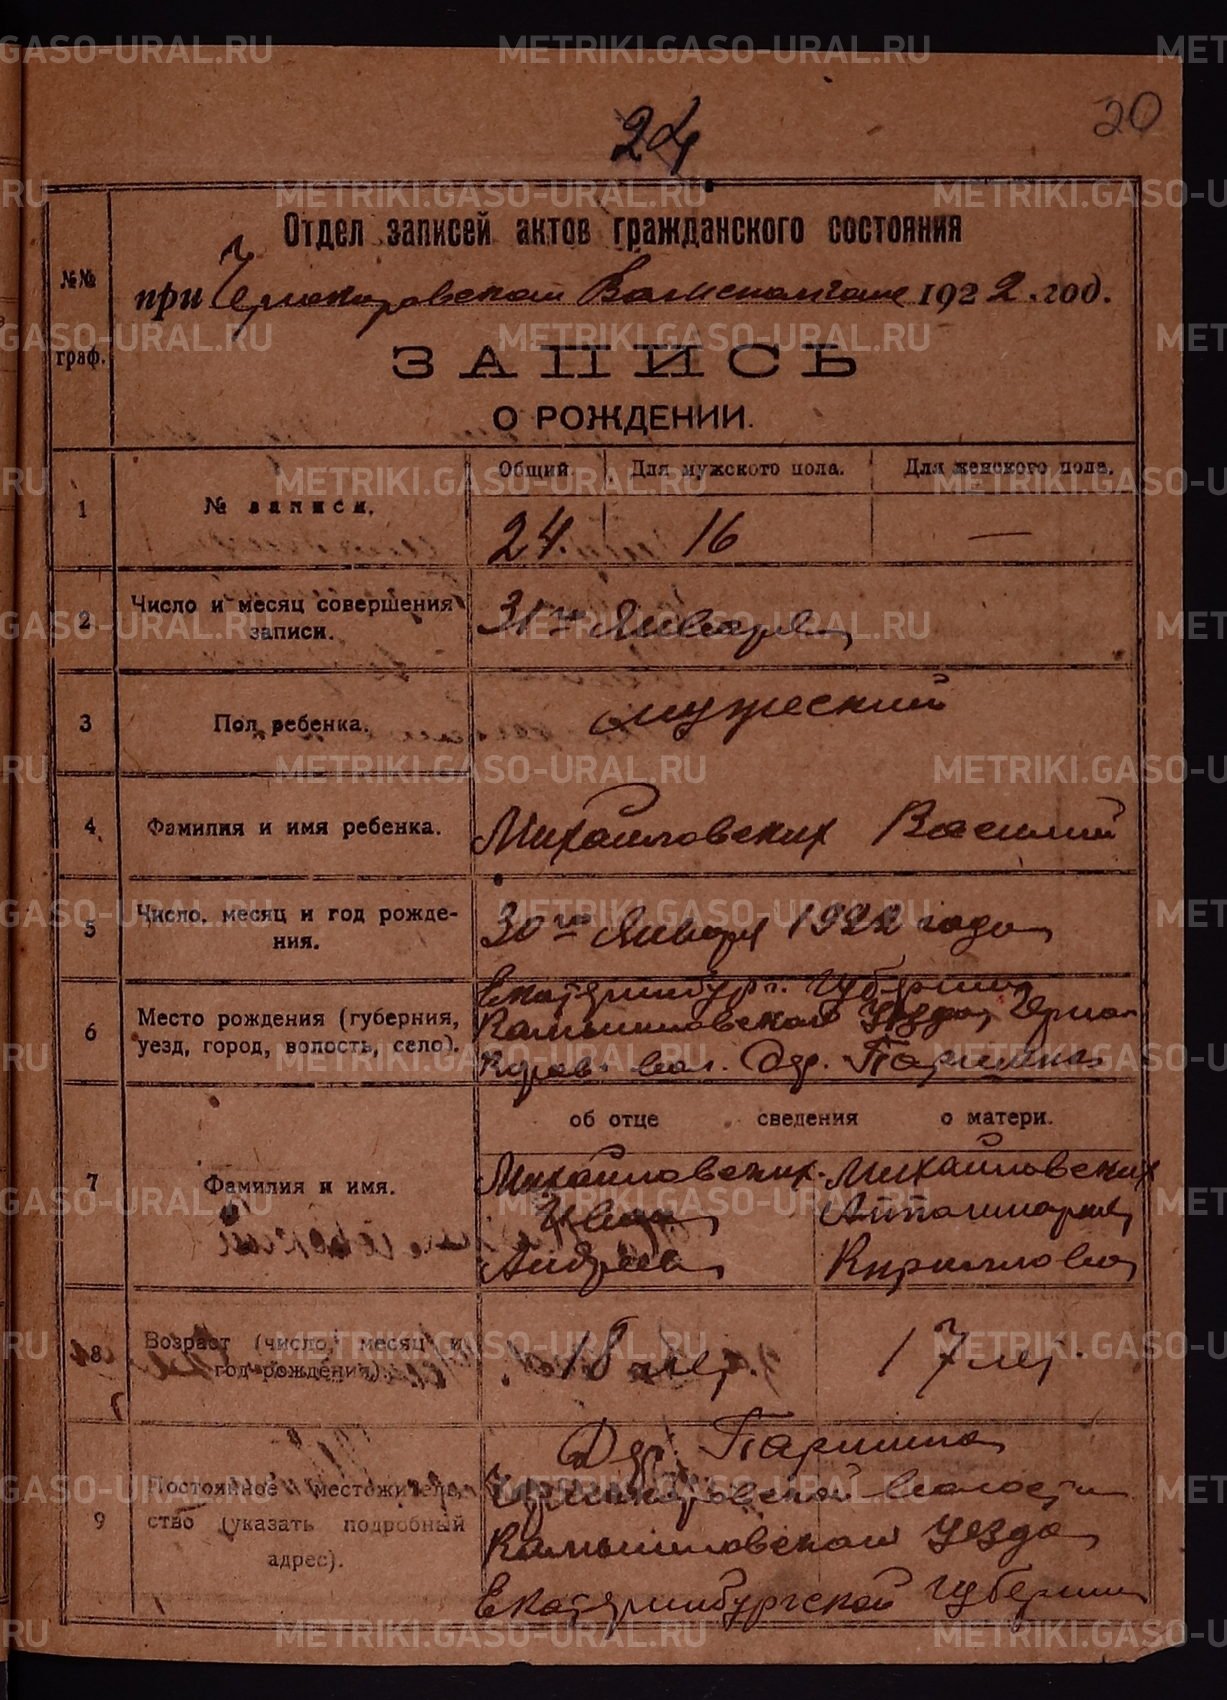 20
24
Отдел записей актов гражданского состояния
№№ граф.
при Чернокоровском Волисполкоме 1922 год.
ЗАПИСЬ
О РОЖДЕНИИ.
Общий Для мужского пола. Для женского пола.
1 № записи. 24. 16 —
2 Число и месяц совершения записи. 31го Января
3 Пол ребенка. мужеский
4 Фамилия и имя ребенка. Михайловских Василий
5 Число, месяц и год рожде-
ния. 30го Января 1922 года
6 Место рождения (губерния,
уезд, город, волость, село).
Екатеринбург. Губерния
Камышловского Уезда, Черно
Коров. вол. Дер. Паршина
об отце сведения о матери.
7 Фамилия и имя.
Михайловских Михайловских
Андреев Кирилловна
8 Возраст (число, месяц и
год рождения).
18 лет. 17 лет.
9 Постоянное местожитель-
ство (указать подробный
адрес).
Дер. Паршина
Чернокоровской волости
Камышловского Уезда
Екатеринбургской губернии
METRIKI.GASO-URAL.RU